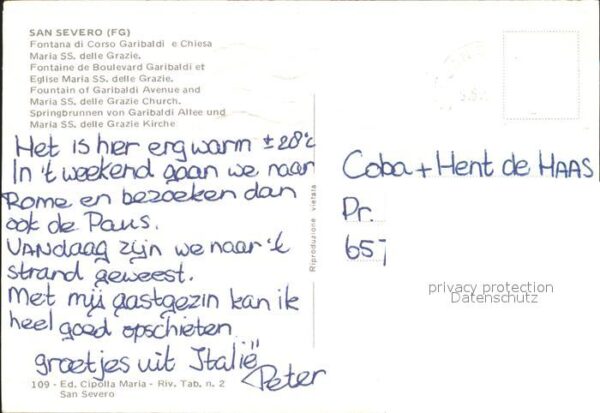 SAN SEVERO (FG)
Fontana di Corso Garibaldi e Chiesa
Maria SS. delle Grazie.
Fontaine de Boulevard Garibaldi et
Eglise Maria SS. delle Grazie.
Fountain of Garibaldi Avenue and
Maria SS. delle Grazie Church.
Springbrunnen von Garibaldi Allee und
Maria SS. delle Grazie Kirche
Het is hier erg warm ± 28°c
In 't weekend gaan we naar
Rome en bezoeken dan
ook de Paus.
VANDaag zijn we naar 't
strand geweest.
Met mij gastgezin kan ik
heel goed opschieten
groetjes uit Italië
Peter
109 - Ed. Cipolla Maria - Riv. Tab. n. 2
San Severo
Riproduzione vietata
Coba + Hent de HAAS
Pr.
657
privacy protection
Datenschutz